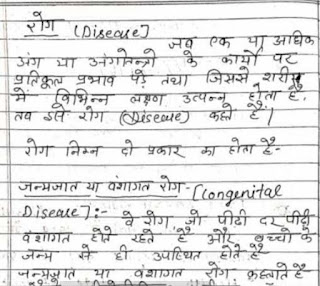 रोग (Disease)
जब एक या अधिक
अंग या अंगतन्त्रो के कार्यो पर
प्रतिकूल प्रभाव पड़े तथा जिससे शरीर
में विभिन्न लक्षण उत्पन्न होता है,
तब इसे रोग (Disease) कहते है।
रोग निम्न दो प्रकार का होता है-
जन्मजात या वंशागत रोग- [Congenital
Disease]:- वे रोग जो पीढी दर पीढी
वंशागत होते रहते है और बच्चो के
जन्म से ही उपस्थित होते है
जन्मजात या वंशागत रोग कहलाते है-